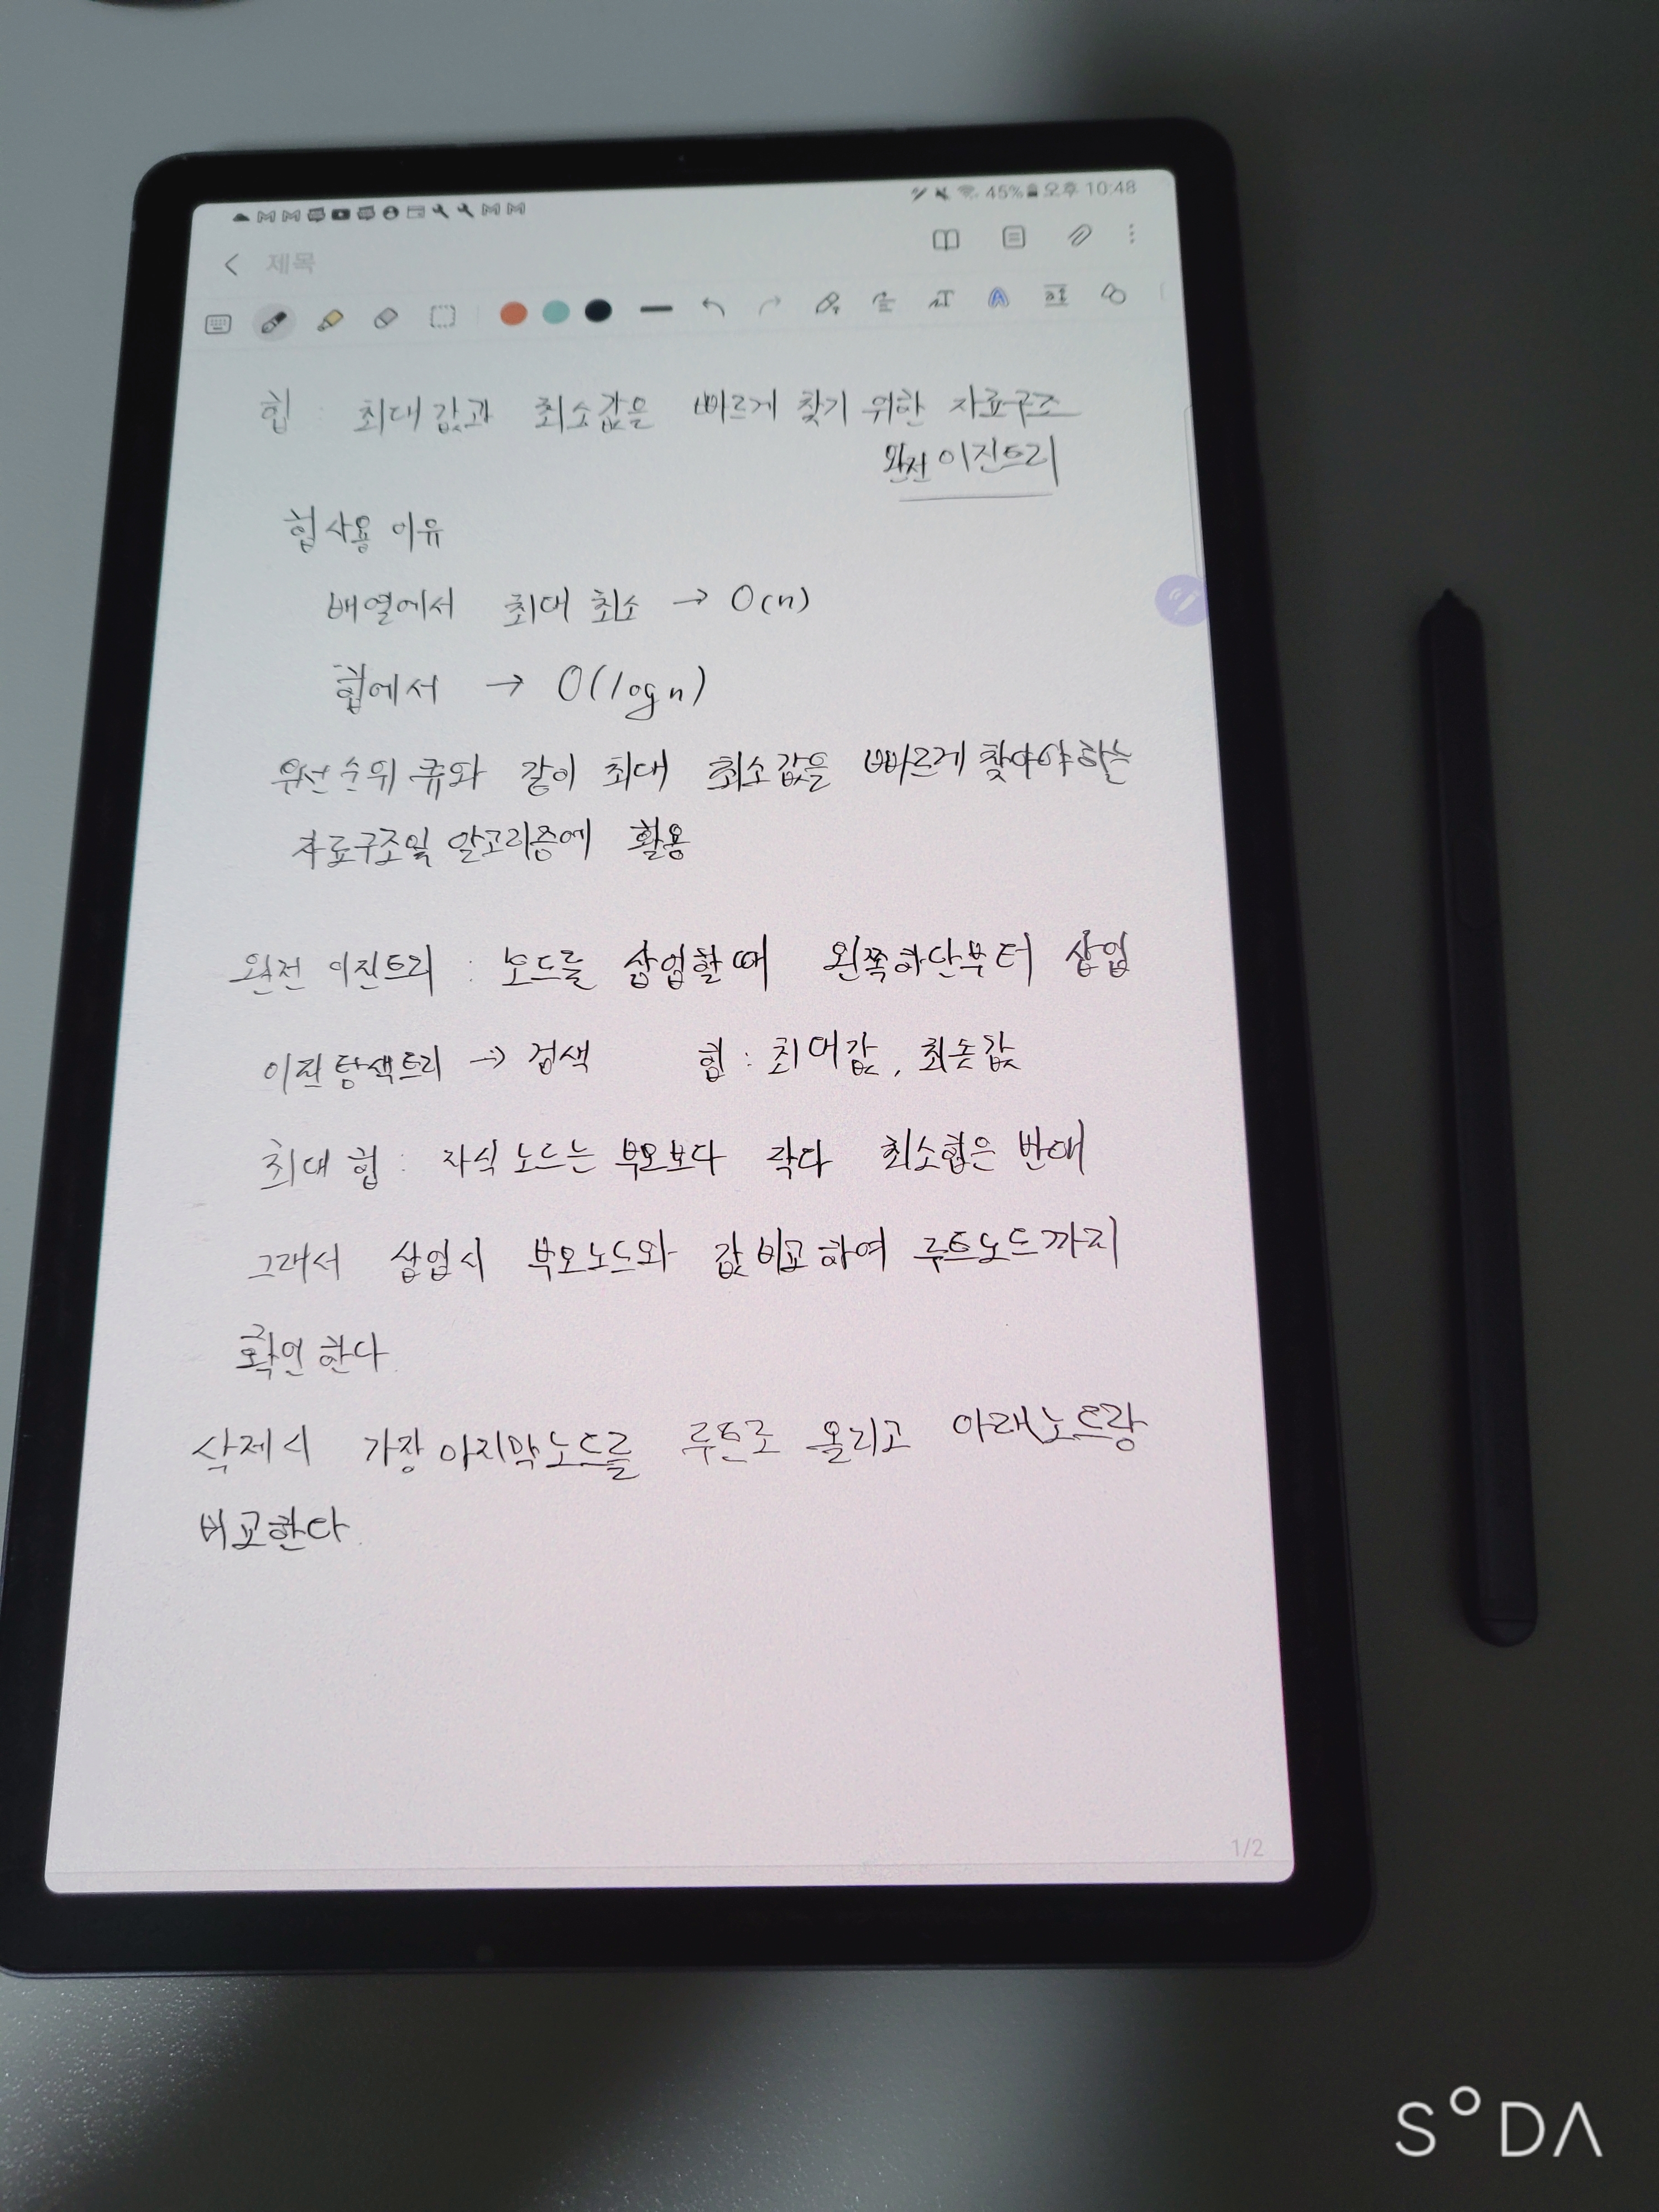 45% 오후 10:48
제목
힙 : 최대값과 최소값을 빠르게 찾기 위한 자료구조
완전 이진트리
힙사용 이유
배열에서 최대 최소 → O(n)
힙에서 → O(log n)
우선순위 큐와 같이 최대 최소값을 빠르게 찾아야하는
자료구조및 알고리즘에 활용
완전 이진트리 : 노드를 삽입할때 왼쪽하단부터 삽입
이진탐색트리 → 검색 힙 : 최대값, 최솟값
최대 힙 : 자식 노드는 부모보다 작다 최소힙은 반대
그래서 삽입시 부모노드와 값 비교하여 루트노드까지
확인한다.
삭제시 가장 마지막노드를 루트로 올리고 아래노드랑
비교한다.
1/2
SODA